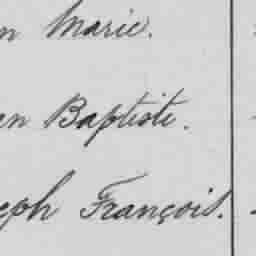 n Marie.
an Baptiste.
eph François.